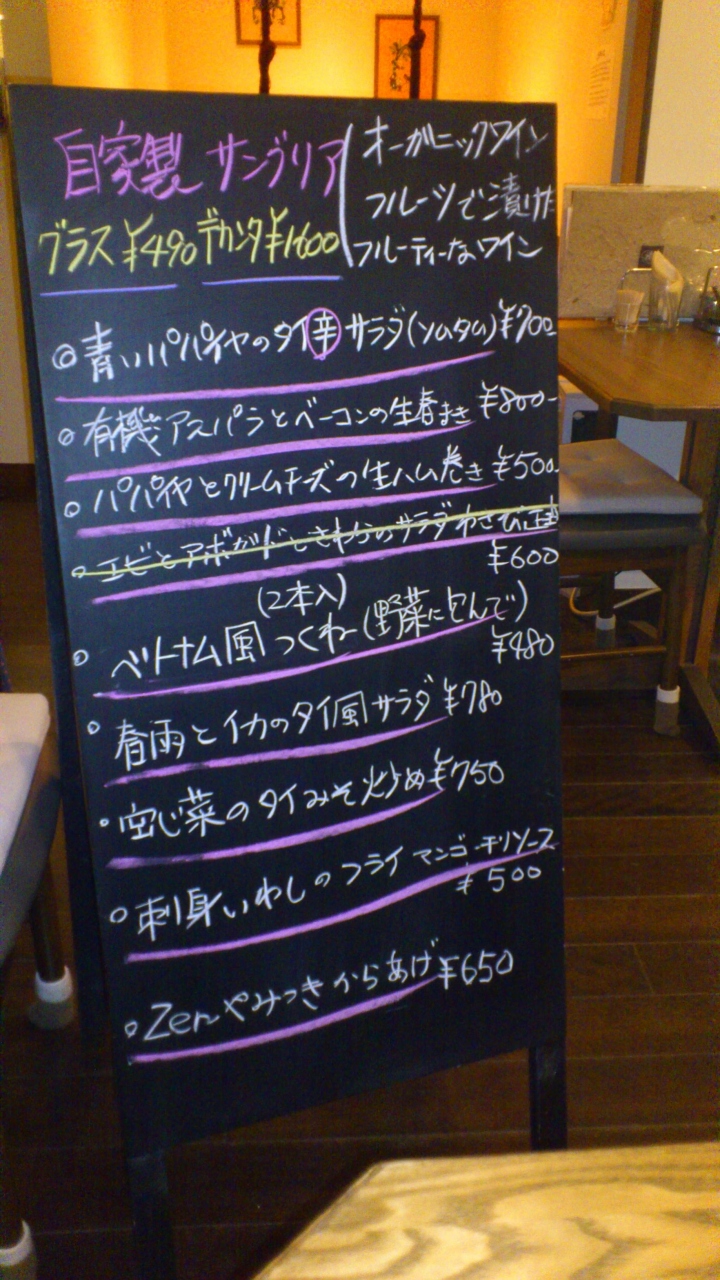 自家製 サングリア
グラス ¥490 デカンタ ¥1600
オーガニックワイン
フルーツで漬けた
フルーティーなワイン
◎青いパパイヤのタイ辛サラダ(ソムタム)¥700-
○有機アスパラとベーコンの生春まき ¥800-
○パパイヤとクリームチーズの生ハム巻き ¥500
○エビとアボガドときわらのサラダわさび
¥600
(2本入)
○ベトナム風つくねー(野菜に包んで)
¥480
○春雨とイカのタイ風サラダ ¥780
・空心菜のタイみそ炒め ¥750
○刺身いわしのフライ マンゴーチリソース
¥500
○Zenやみつきからあげ ¥650